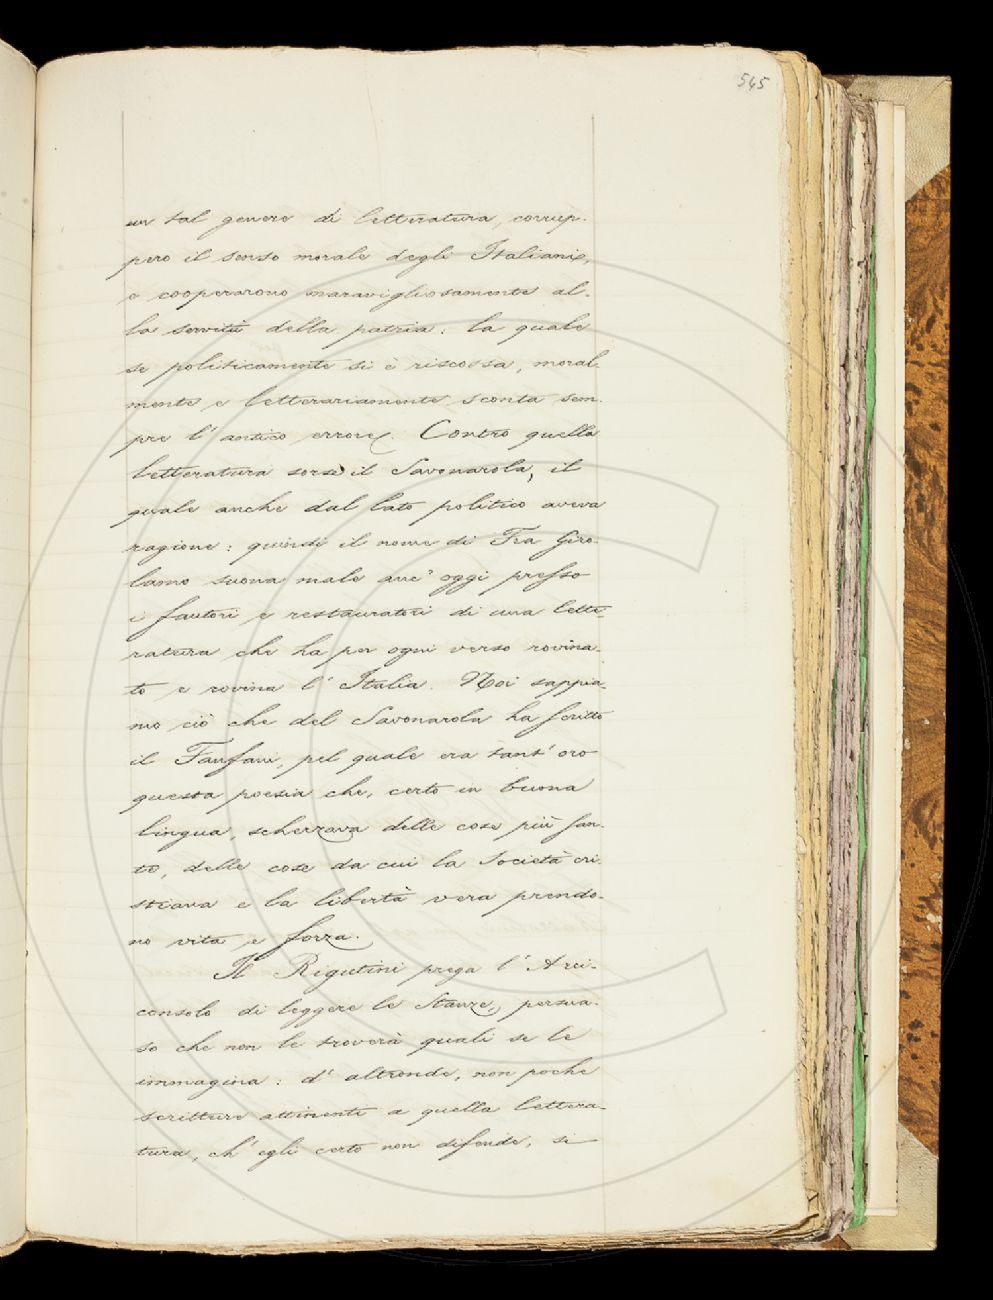 545
un tal genere di letteratura, corrup-
pero il senso morale degli Italiani,
e cooperarono maravigliosamente al-
la servitù della patria: la quale
se politicamente si è riscossa, moral-
mente e letterariamente sconta sem-
pre l'antico errore. Contro quella
letteratura sorse il Savonarola, il
quale anche dal lato politico aveva
ragione: quindi il nome di Fra Giro-
lamo suona male anc'oggi presso
i fautori e restauratori di una lette-
ratura che ha per ogni verso rovina-
to e rovina l'Italia. Noi sappia-
mo ciò che del Savonarola ha scritto
il Fanfani, pel quale era tant'oro
questa poesia che, certo in buona
lingua, scherzava delle cose più san-
te, delle cose da cui la Società cri-
stiana e la libertà vera prendo-
no vita e forza.
Il Rigutini prega l'Arci-
consolo di leggere le Stanze, persua-
so che non le troverà quali se le
immagina: d'altronde, non poche
scritture attinenti a quella lettera-
tura, ch'egli certo non difende, si